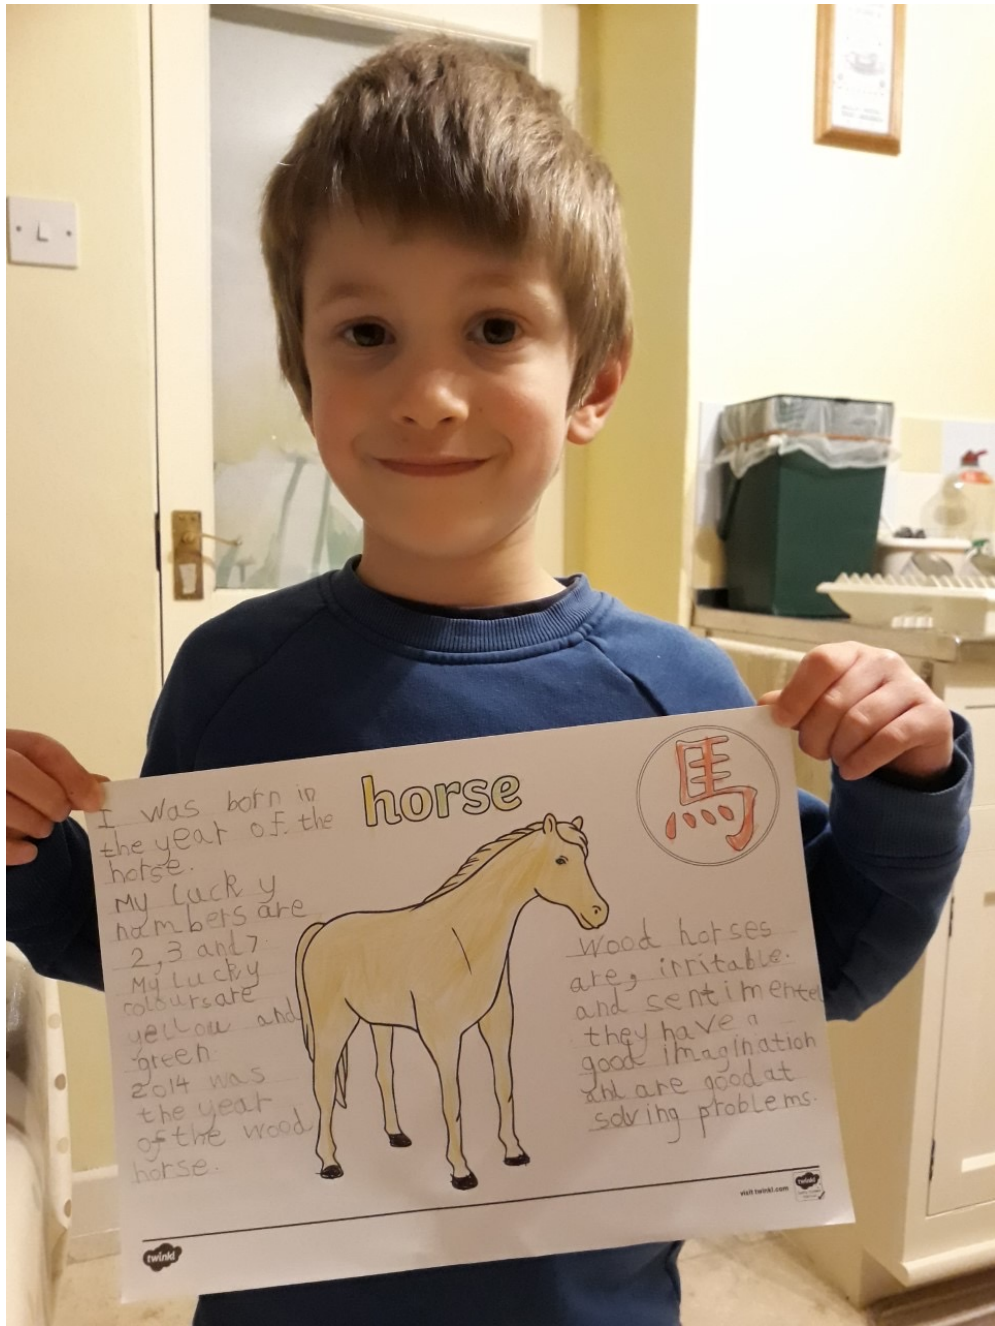 horse
馬
I was born in
the year of the
horse.
My lucky
numbers are
2, 3 and 7.
My lucky
colours are
yellow and
green
2014 was
the year
of the wood
horse.
Wood horses
are, irritable.
and sentimentel
they have a
good imagination
and are good at
solving problems.
visit twinkl.com
twinkl
twinkl